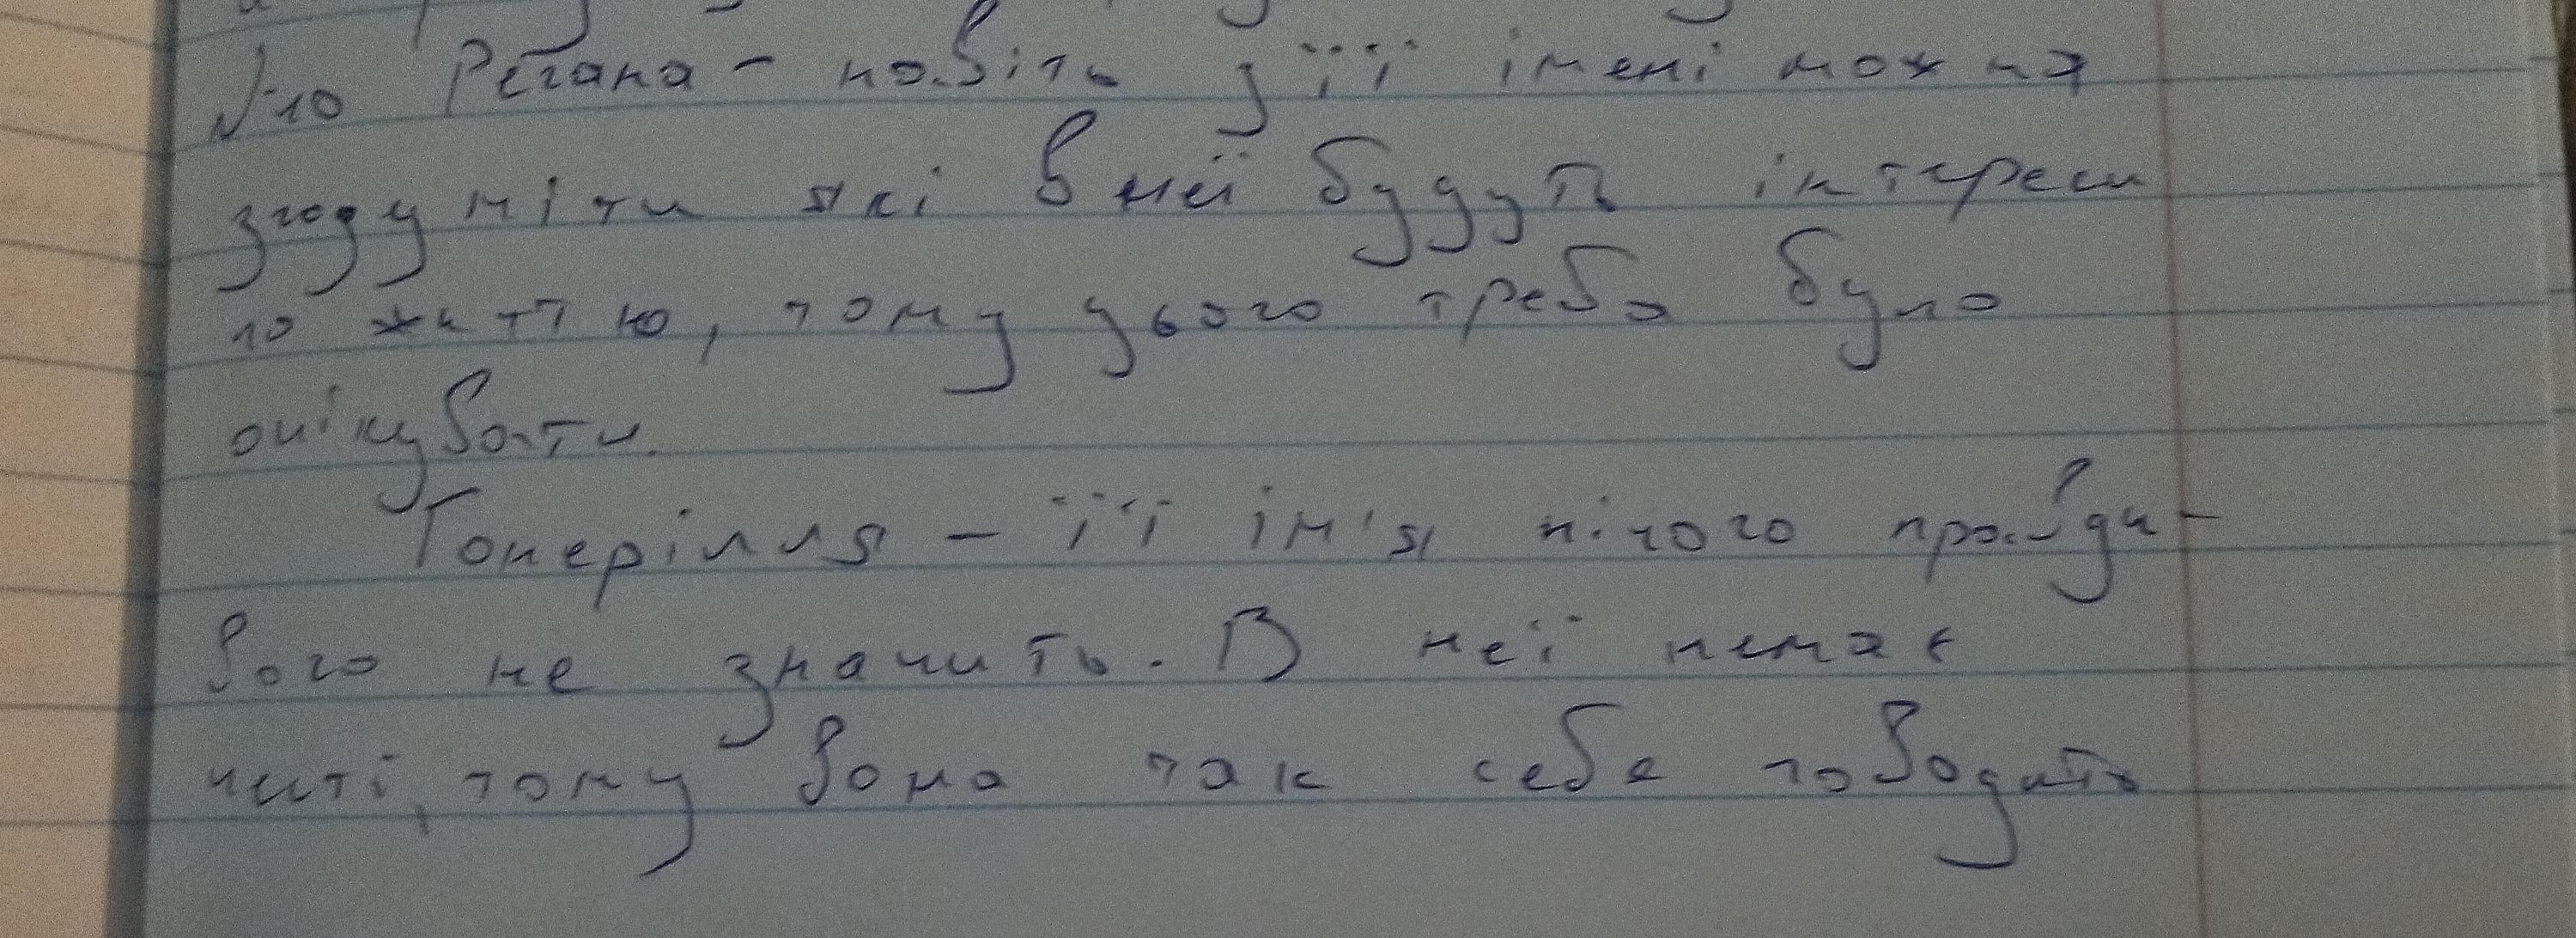 №10 Регана - навіть з її імені можна
згодуміти які в неї будуть інтереси
по життю, тому цього треба було
очікувати.
Гонерілля - її ім'я нічого правди-
вого не значить. В неї немає
читі, тому вона так себе поводить